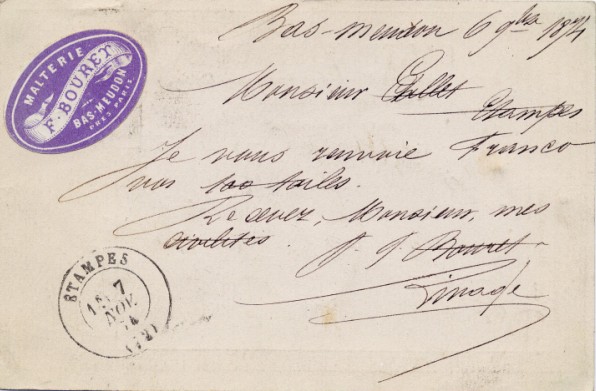 Bas-Meudon 6 9bre 1874
MALTERIE
F. BOURET
BAS-MEUDON
PRÈS PARIS
Monsieur Gallet
Etampes
Je vous renvoie Franco
vos 100 toiles.
Recevez, Monsieur, mes
civilités. P. F. Bouret.
Pinage
ETAMPES
7
NOV.
74